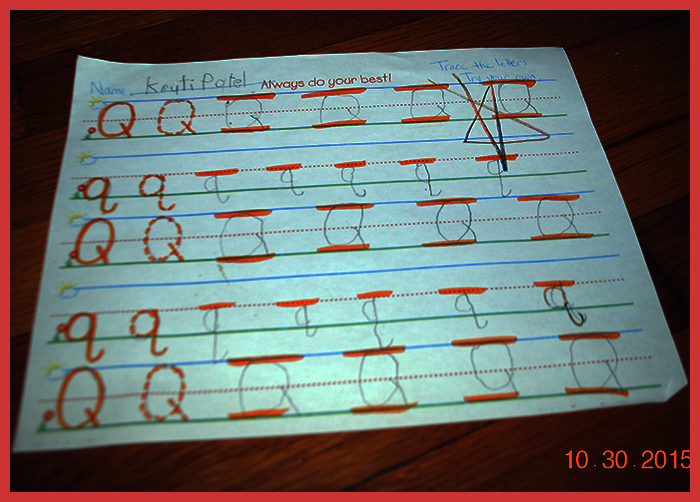 Trace the letters
Name Patel Always do your best! Try your own
Q Q Q Q Q Q
q q q q q q q
Q Q Q Q Q Q
q q q q q q q
Q Q Q Q Q Q
10.30.2015